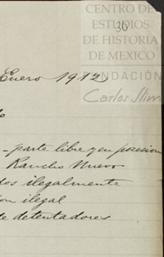 CENTRO DE
ESTUDIOS
DE HISTORIA
DE MEXICO
FUNDACIÓN
Carlos Slim
30
Enero 1912
parte libre y en posesion
Rancho Nuevo
dos ilegalmente
on ilegal
de detentadores